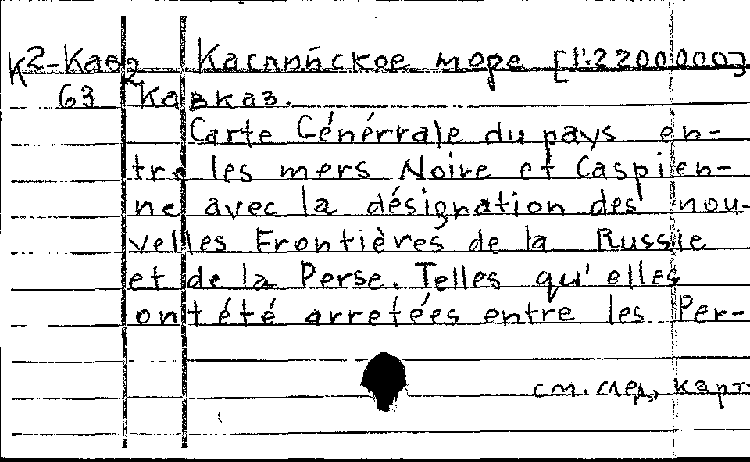 К2-Кав2 Каспийское море [1:2200000]
63 Кавказ.
Carte Générrale du pays en-
tre les mers Noire et Caspien-
ne avec la désignation des nou-
velles Frontières de la Russie
et de la Perse. Telles qu'elles
ont été arretées entre les Per-
см. след. карт